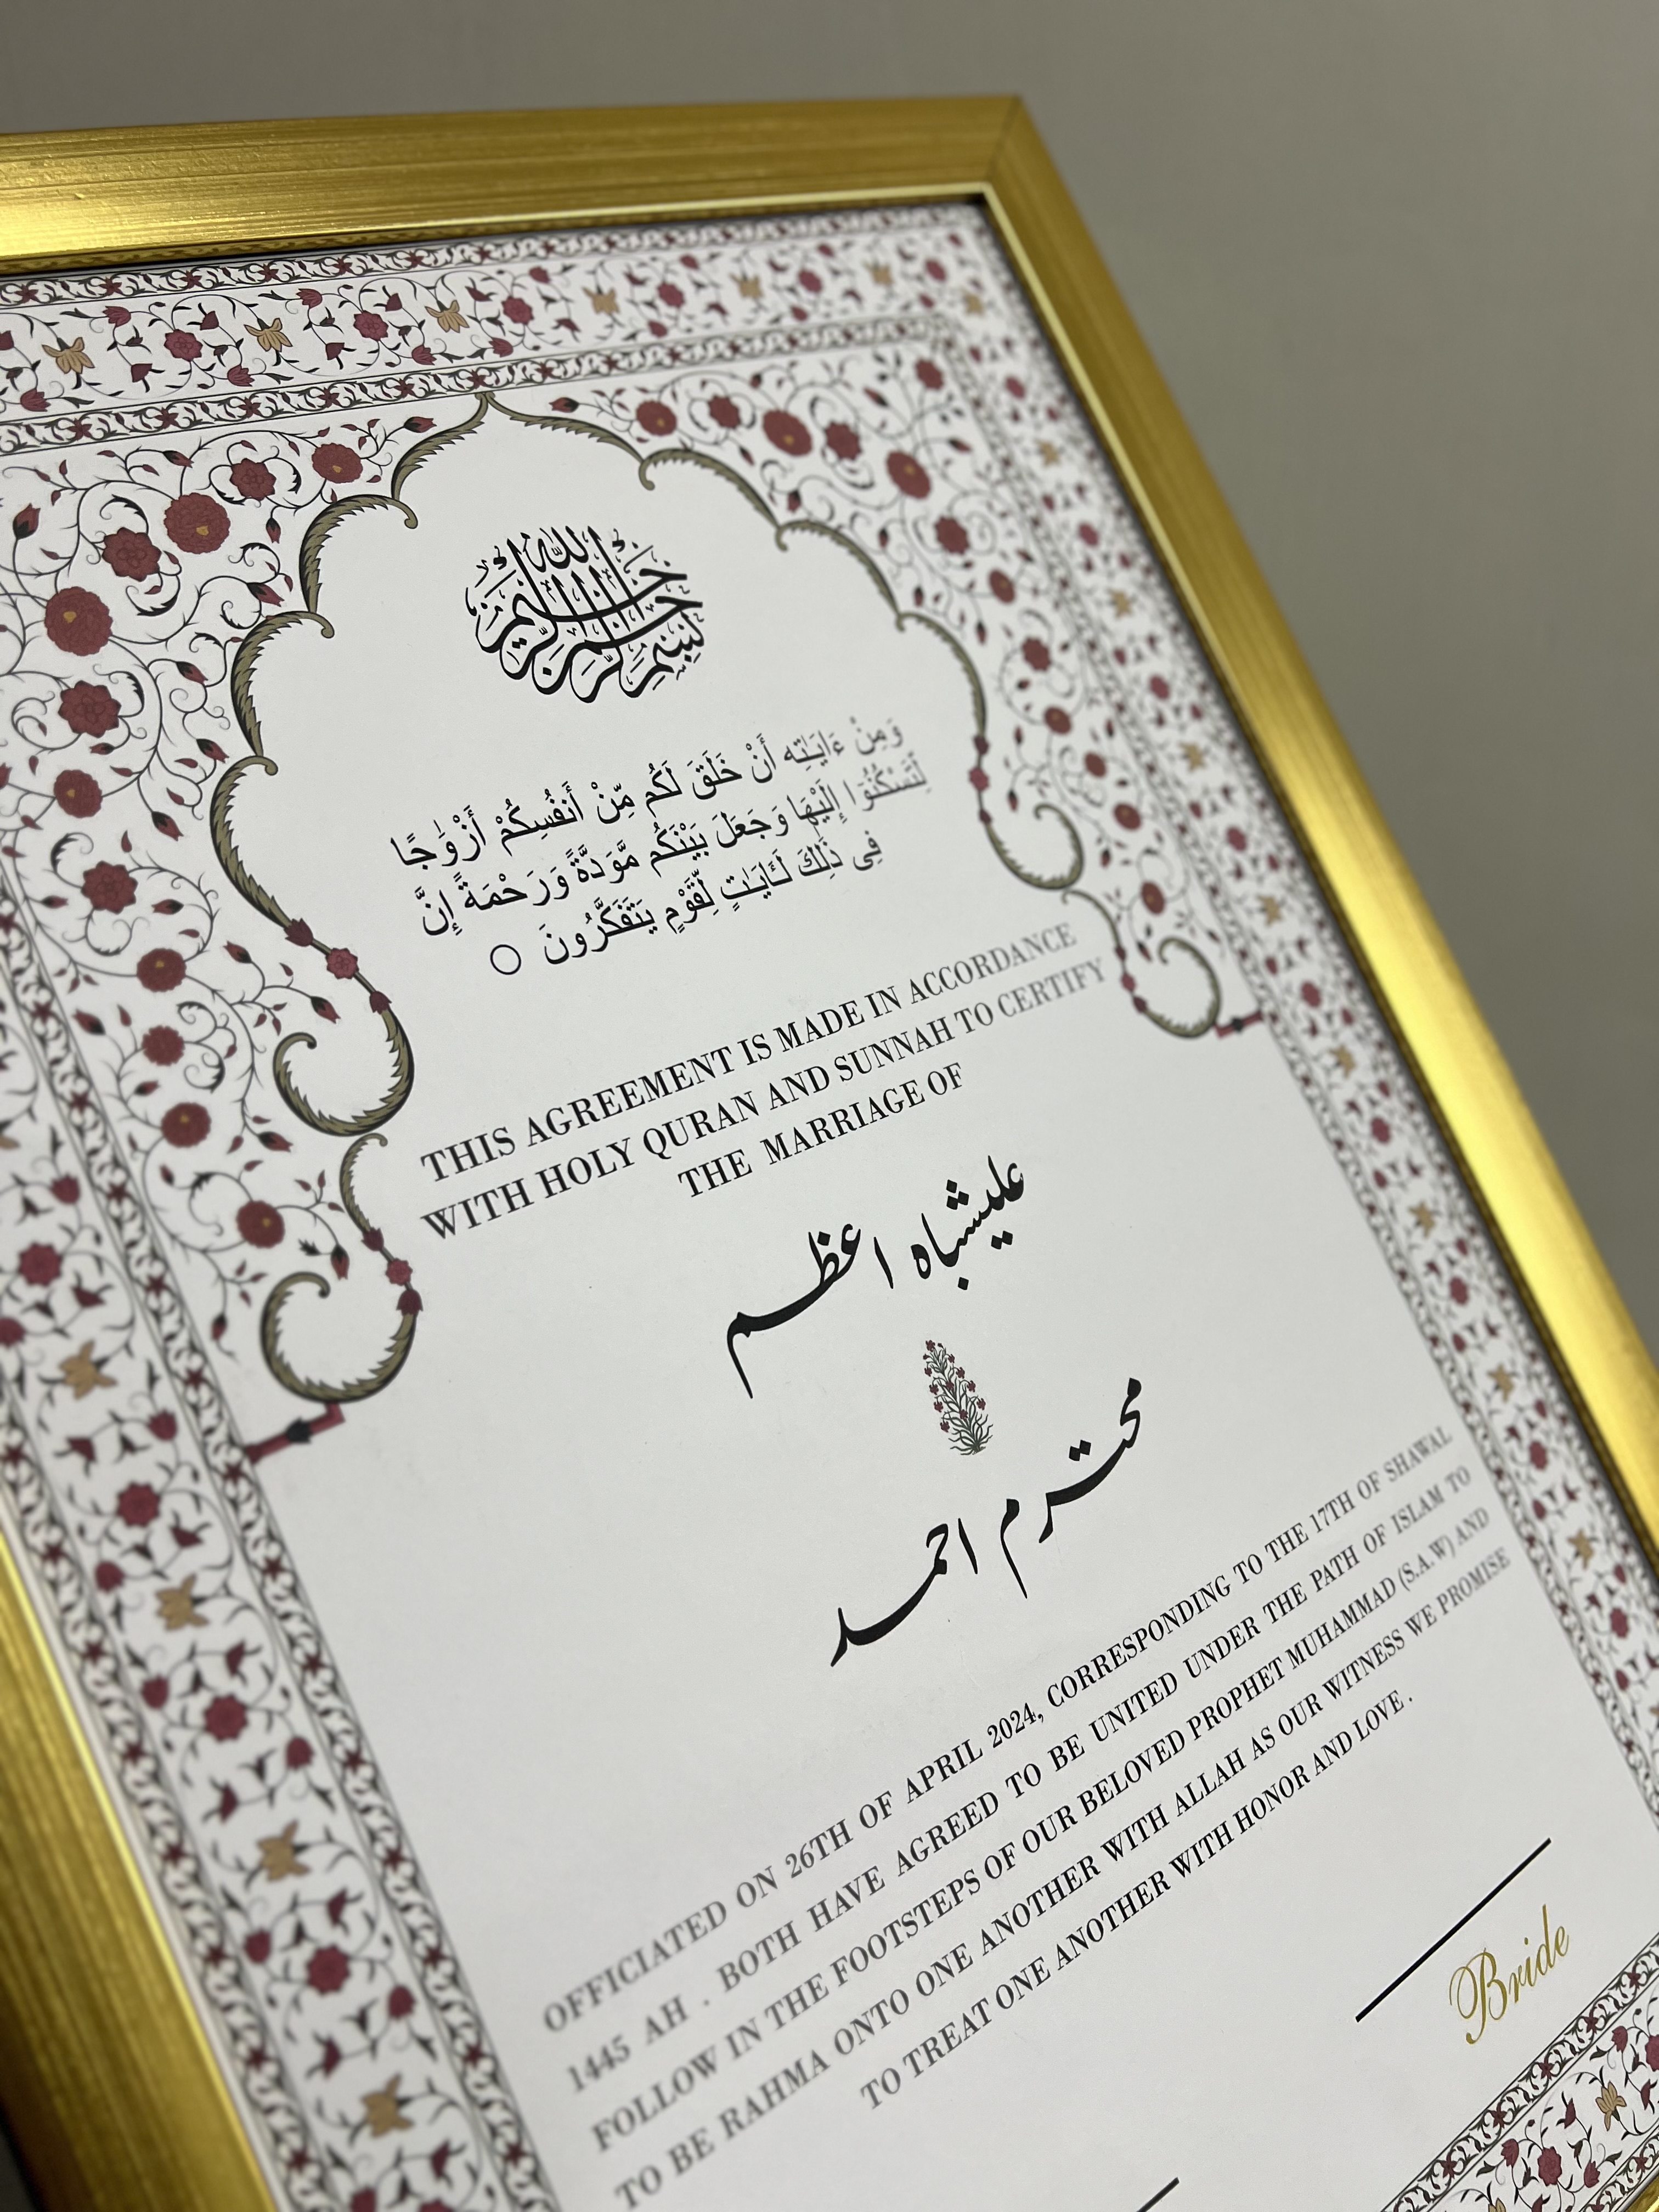 بِسْمِ اللهِ الرَّحْمٰنِ الرَّحِيْمِ
وَمِنْ ءَايَـٰتِهِ أَنْ خَلَقَ لَكُم مِّنْ أَنفُسِكُمْ أَزْوَٰجًا
لِّتَسْكُنُوٓا۟ إِلَيْهَا وَجَعَلَ بَيْنَكُم مَّوَدَّةً وَرَحْمَةً إِنَّ
فِى ذَٰلِكَ لَـَٔايَـٰتٍ لِّقَوْمٍ يَتَفَكَّرُونَ
THIS AGREEMENT IS MADE IN ACCORDANCE
WITH HOLY QURAN AND SUNNAH TO CERTIFY
THE MARRIAGE OF
علیشباہ اعظم
محترم احمد
OFFICIATED ON 26TH OF APRIL 2024, CORRESPONDING TO THE 17TH OF SHAWAL
1445 AH . BOTH HAVE AGREED TO BE UNITED UNDER THE PATH OF ISLAM TO
FOLLOW IN THE FOOTSTEPS OF OUR BELOVED PROPHET MUHAMMAD (S.A.W) AND
TO BE RAHMA ONTO ONE ANOTHER WITH ALLAH AS OUR WITNESS WE PROMISE
TO TREAT ONE ANOTHER WITH HONOR AND LOVE .
Bride